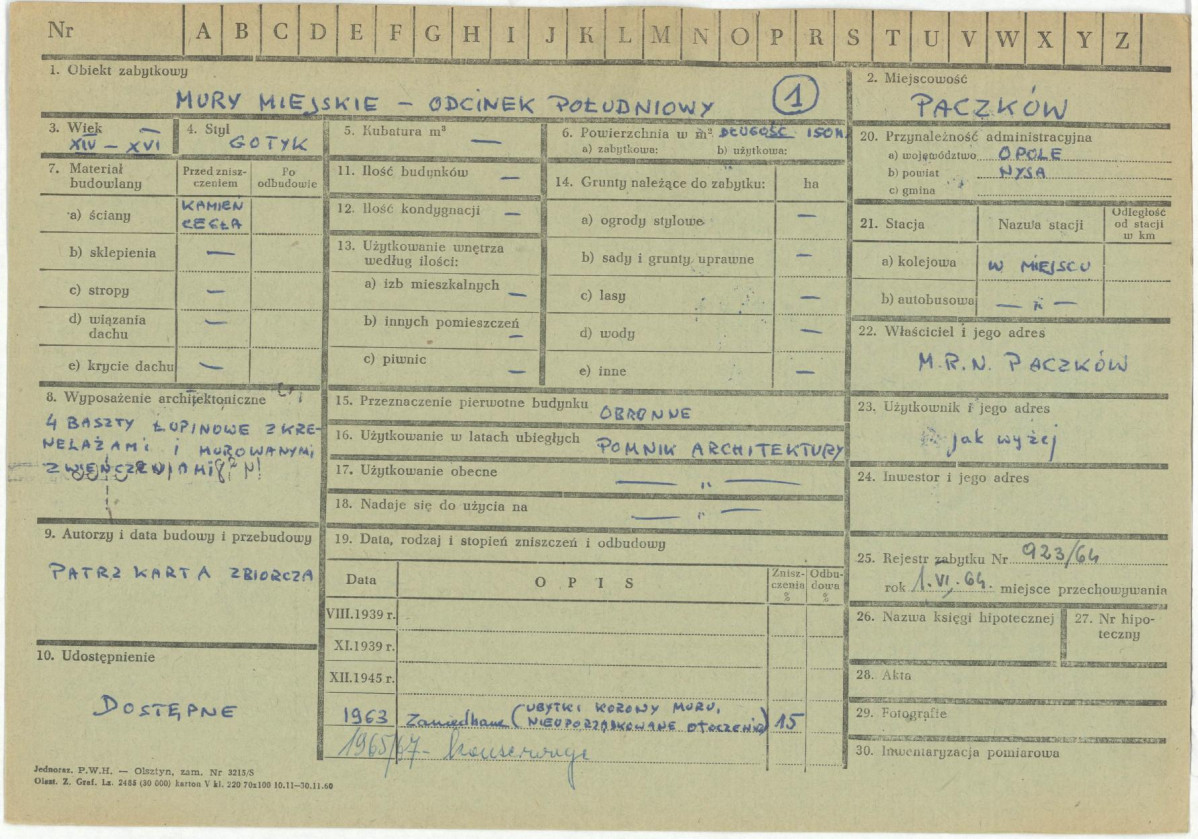 Nr A B C D E F G H I J K L M N O P R S T U V W X Y Z
1. Obiekt zabytkowy
MURY MIEJSKIE – ODCINEK POŁUDNIOWY 1
2. Miejscowość
PACZKÓW
3. Wiek
XIV – XVI
4. Styl
GOTYK
5. Kubatura m³
—
6. Powierzchnia w m² DŁUGOŚĆ 150 M.
a) zabytkowa: b) użytkowa:
20. Przynależność administracyjna
a) województwo OPOLE
b) powiat NYSA
c) gmina
7. Materiał budowlany
Przed znisz-
czeniem
Po
odbudowie
a) ściany KAMIEŃ
CEGŁA
b) sklepienia —
c) stropy —
d) wiązania
dachu —
e) krycie dachu —
11. Ilość budynków —
12. Ilość kondygnacji —
13. Użytkowanie wnętrza
według ilości:
a) izb mieszkalnych —
b) innych pomieszczeń —
c) piwnic —
14. Grunty należące do zabytku: ha
a) ogrody stylowe —
b) sady i grunty uprawne —
c) lasy —
d) wody —
e) inne —
21. Stacja Nazwa stacji
Odległość
od stacji
w km
a) kolejowa W MIEJSCU
b) autobusowa — „ —
22. Właściciel i jego adres
M.R.N. PACZKÓW
8. Wyposażenie architektoniczne
4 BASZTY ŁUPINOWE Z KRE-
NELAŻAMI I MUROWANYMI
ZWIEŃCZENIAMI
15. Przeznaczenie pierwotne budynku OBRONNE
16. Użytkowanie w latach ubiegłych POMNIK ARCHITEKTURY
17. Użytkowanie obecne — „ —
18. Nadaje się do użycia na — „ —
23. Użytkownik i jego adres
jak wyżej
24. Inwestor i jego adres
9. Autorzy i data budowy i przebudowy
PATRZ KARTA ZBIORCZA
19. Data, rodzaj i stopień zniszczeń i odbudowy
Data OPIS
Znisz-
czenia
%
Odbu-
dowa
%
VIII.1939 r.
XI.1939 r.
XII.1945 r.
1963 Zaniedbane (UBYTKI KORONY MURU,
NIEUPORZĄDKOWANE OTOCZENIE) 15
1965/67 – konserwuje
25. Rejestr zabytku Nr 923/64
rok 1.VI.64. miejsce przechowywania
26. Nazwa księgi hipotecznej
27. Nr hipo-
teczny
10. Udostępnienie
DOSTĘPNE
28. Akta
29. Fotografie
30. Inwentaryzacja pomiarowa
Jednoraz. P.W.H. — Olsztyn, zam. Nr 3215/S
Olszt. Z. Graf. Lz. 2485 (30 000) karton V kl. 220 70x100 10.11—30.11.60